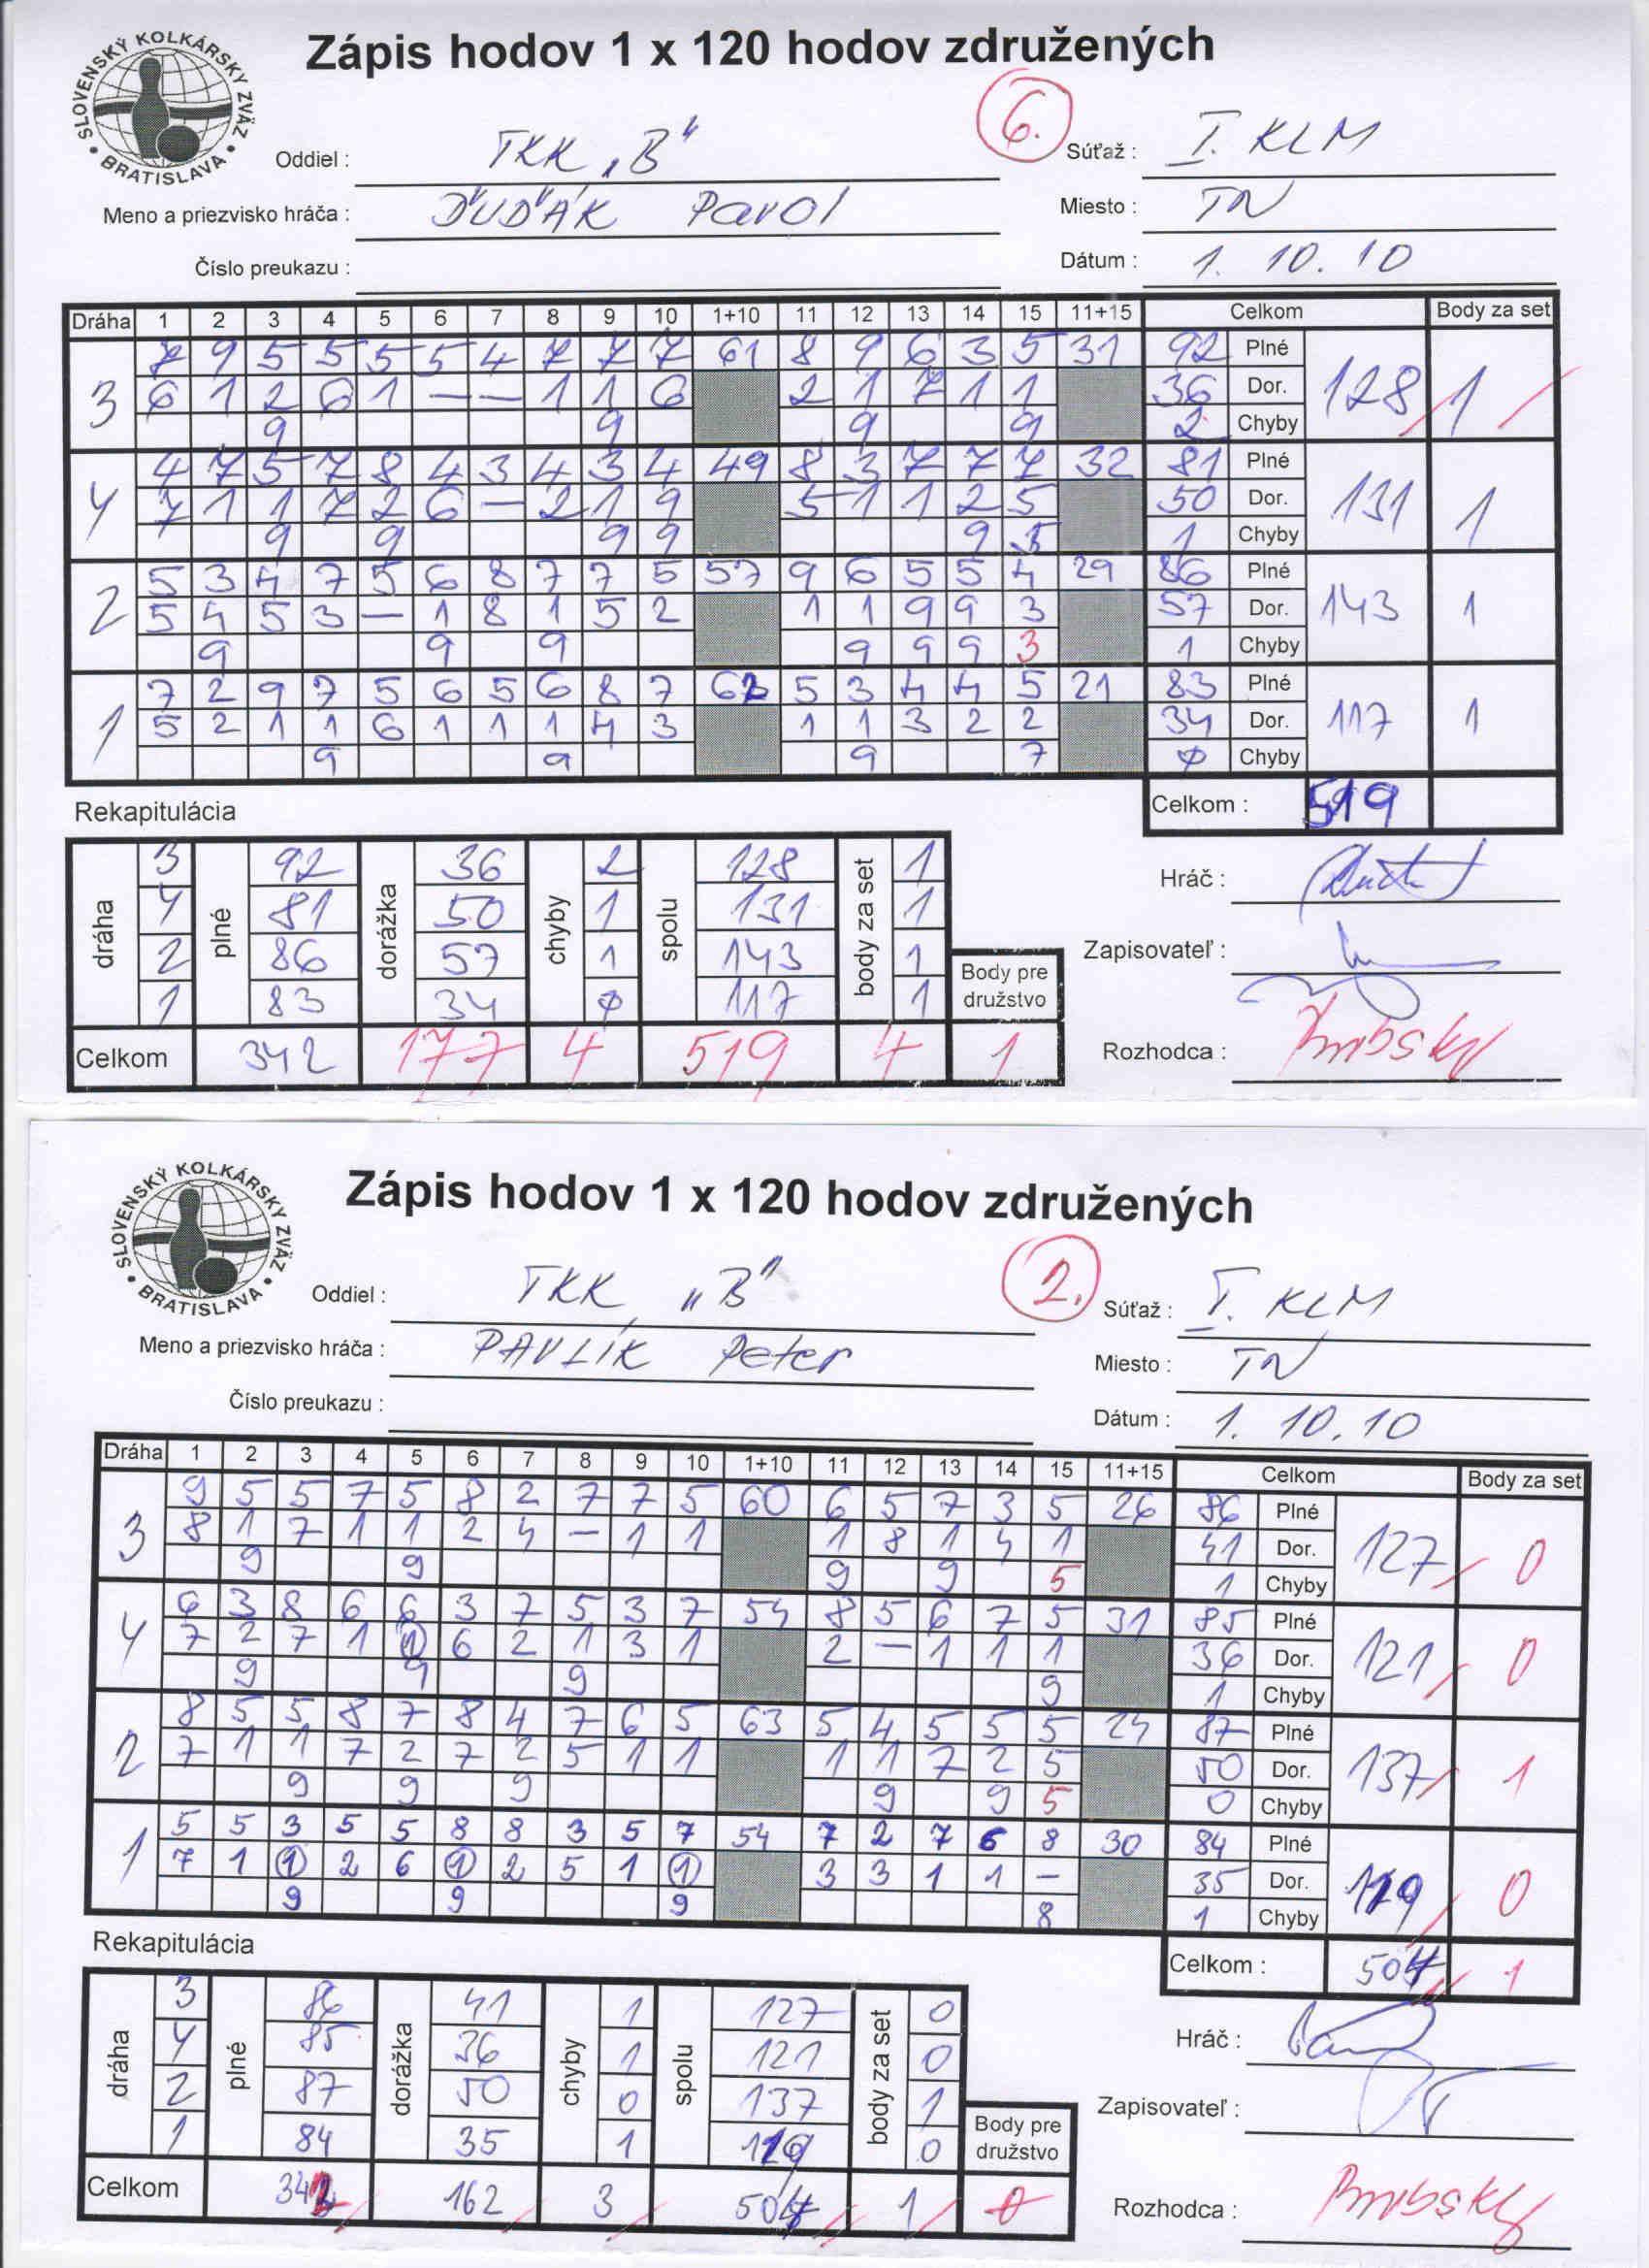 SLOVENSKÝ KOLKÁRSKY ZVÄZ • BRATISLAVA •
Zápis hodov 1 x 120 hodov združených
6.
Oddiel : TKK „B" Súťaž : I. KLM
Meno a priezvisko hráča : ĎUĎÁK Pavol Miesto : TN
Číslo preukazu : Dátum : 1. 10. 10
Dráha 1 2 3 4 5 6 7 8 9 10 1+10 11 12 13 14 15 11+15 Celkom Body za set
7 9 5 5 5 5 4 7 7 7 61 8 9 6 3 5 31 92 Plné
3 6 1 2 6 1 — — 1 1 6 2 1 7 1 1 36 Dor. 128 1
9 9 9 9 2 Chyby
4 7 5 7 8 4 3 4 3 4 49 8 3 7 7 7 32 81 Plné
4 7 1 1 7 2 6 — 2 1 9 5 1 1 2 5 50 Dor. 131 1
9 9 9 9 9 5 1 Chyby
5 3 4 7 5 6 8 7 7 5 57 9 6 5 5 4 29 86 Plné
2 5 4 5 3 — 1 8 1 5 2 1 1 9 9 3 57 Dor. 143 1
9 9 9 9 9 9 3 1 Chyby
7 2 9 7 5 6 5 6 8 7 62 5 3 4 4 5 21 83 Plné
1 5 2 1 1 6 1 1 1 4 3 1 1 3 2 2 34 Dor. 117 1
9 9 9 7 0 Chyby
Celkom : 519
Rekapitulácia
dráha 3 plné 92 dorážka 36 chyby 2 spolu 128 body za set 1
4 81 50 1 131 1
2 86 57 1 143 1
1 83 34 0 117 1
Body pre družstvo
Celkom 342 177 4 519 4 1
Hráč :
Zapisovateľ :
Rozhodca :
SLOVENSKÝ KOLKÁRSKY ZVÄZ • BRATISLAVA •
Zápis hodov 1 x 120 hodov združených
2.
Oddiel : TKK „B" Súťaž : I. KLM
Meno a priezvisko hráča : PAVLÍK Peter Miesto : TN
Číslo preukazu : Dátum : 1. 10. 10
Dráha 1 2 3 4 5 6 7 8 9 10 1+10 11 12 13 14 15 11+15 Celkom Body za set
9 5 5 7 5 8 2 7 7 5 60 6 5 7 3 5 26 86 Plné
3 8 1 7 1 1 2 4 — 1 1 1 8 1 4 1 41 Dor. 127 0
9 9 9 9 5 1 Chyby
6 3 8 6 6 3 7 5 3 7 54 8 5 6 7 5 31 85 Plné
4 7 2 7 1 1 6 2 1 3 1 2 — 1 1 1 36 Dor. 121 0
9 9 9 9 1 Chyby
8 5 5 8 7 8 4 7 6 5 63 5 4 5 5 5 24 87 Plné
2 7 1 1 7 2 7 2 5 1 1 1 1 7 2 5 50 Dor. 137 1
9 9 9 9 9 5 0 Chyby
5 5 3 5 5 8 8 3 5 7 54 7 2 7 6 8 30 84 Plné
1 7 1 1 2 6 1 2 5 1 1 3 3 1 1 – 35 Dor. 119 0
9 9 9 8 1 Chyby
Celkom : 504 1
Rekapitulácia
dráha 3 plné 86 dorážka 41 chyby 1 spolu 127 body za set 0
4 85 36 1 121 0
2 87 50 0 137 1
1 84 35 1 119 0
Body pre družstvo
Celkom 342 162 3 504 1 0
Hráč :
Zapisovateľ :
Rozhodca :